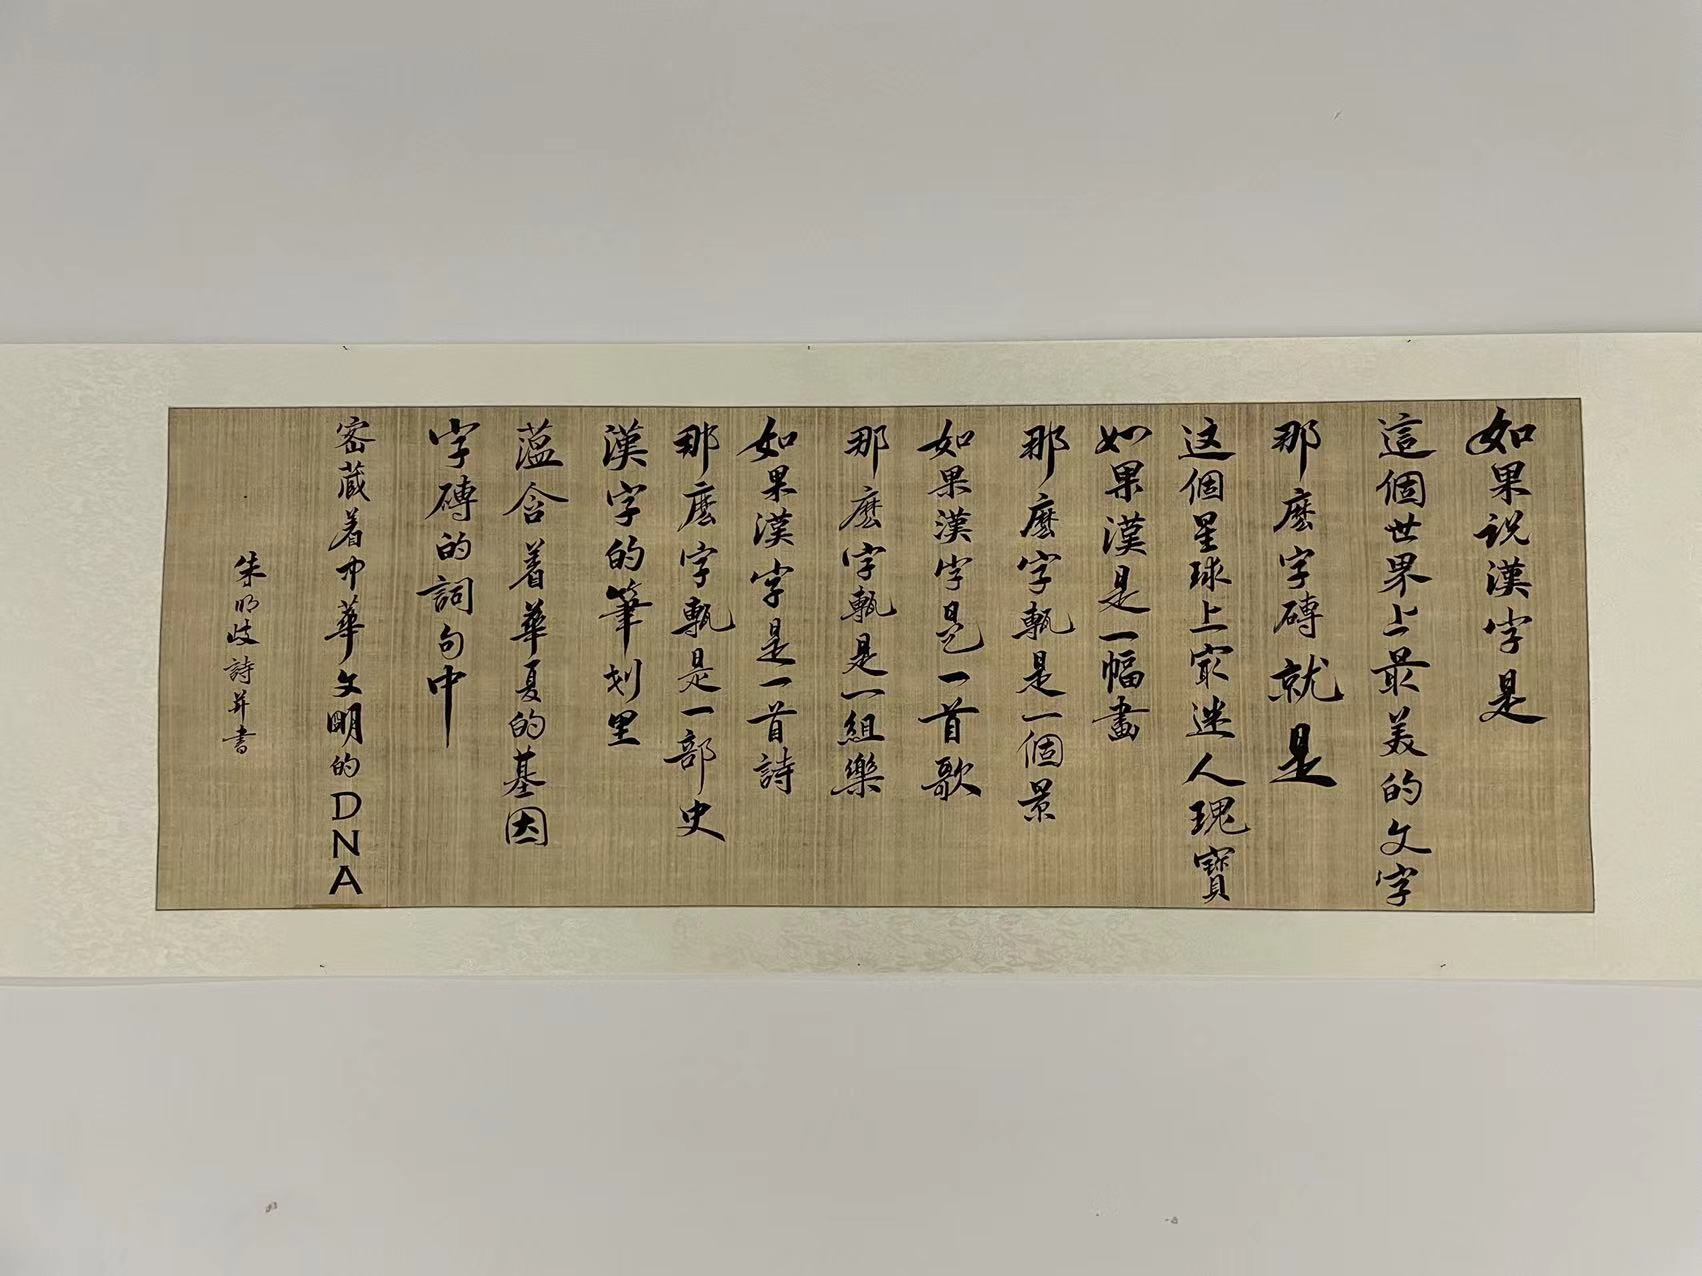 如果说漢字是
這個世界上最美的文字
那麽字磚就是
这個星球上最迷人瑰寶
如果漢是一幅畫
那麽字甎是一個景
如果漢字是一首歌
那麽字甎是一組樂
如果漢字是一首詩
那麽字甎是一部史
漢字的筆划里
藴含着華夏的基因
字磚的詞句中
密藏着中華文明的DNA
朱明歧詩并書